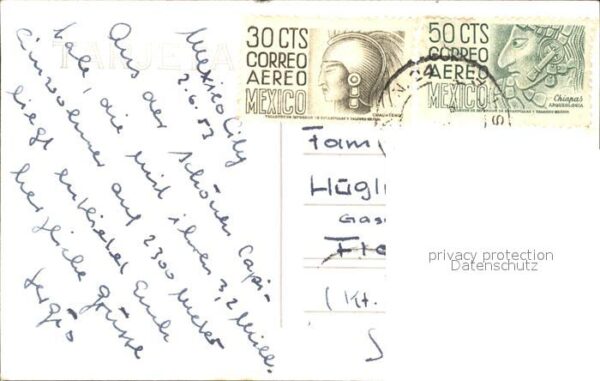 TARJETA
Mexico City
2.6.53
Aus der schönen Capi-
tale, die mit ihren 3,2 Mill.
Einwohner auf 2300 Meter
liegt entbietet Euch
herzliche Grüsse
Sergio
30 CTS
CORREO
AEREO
MEXICO
CUAUHTEMOC
50 CTS
CORREO
AEREO
MEXICO
Chiapas
ARQUEOLOGIA
Fam
Hügli
Gas
(Kt.
privacy protection
Datenschutz